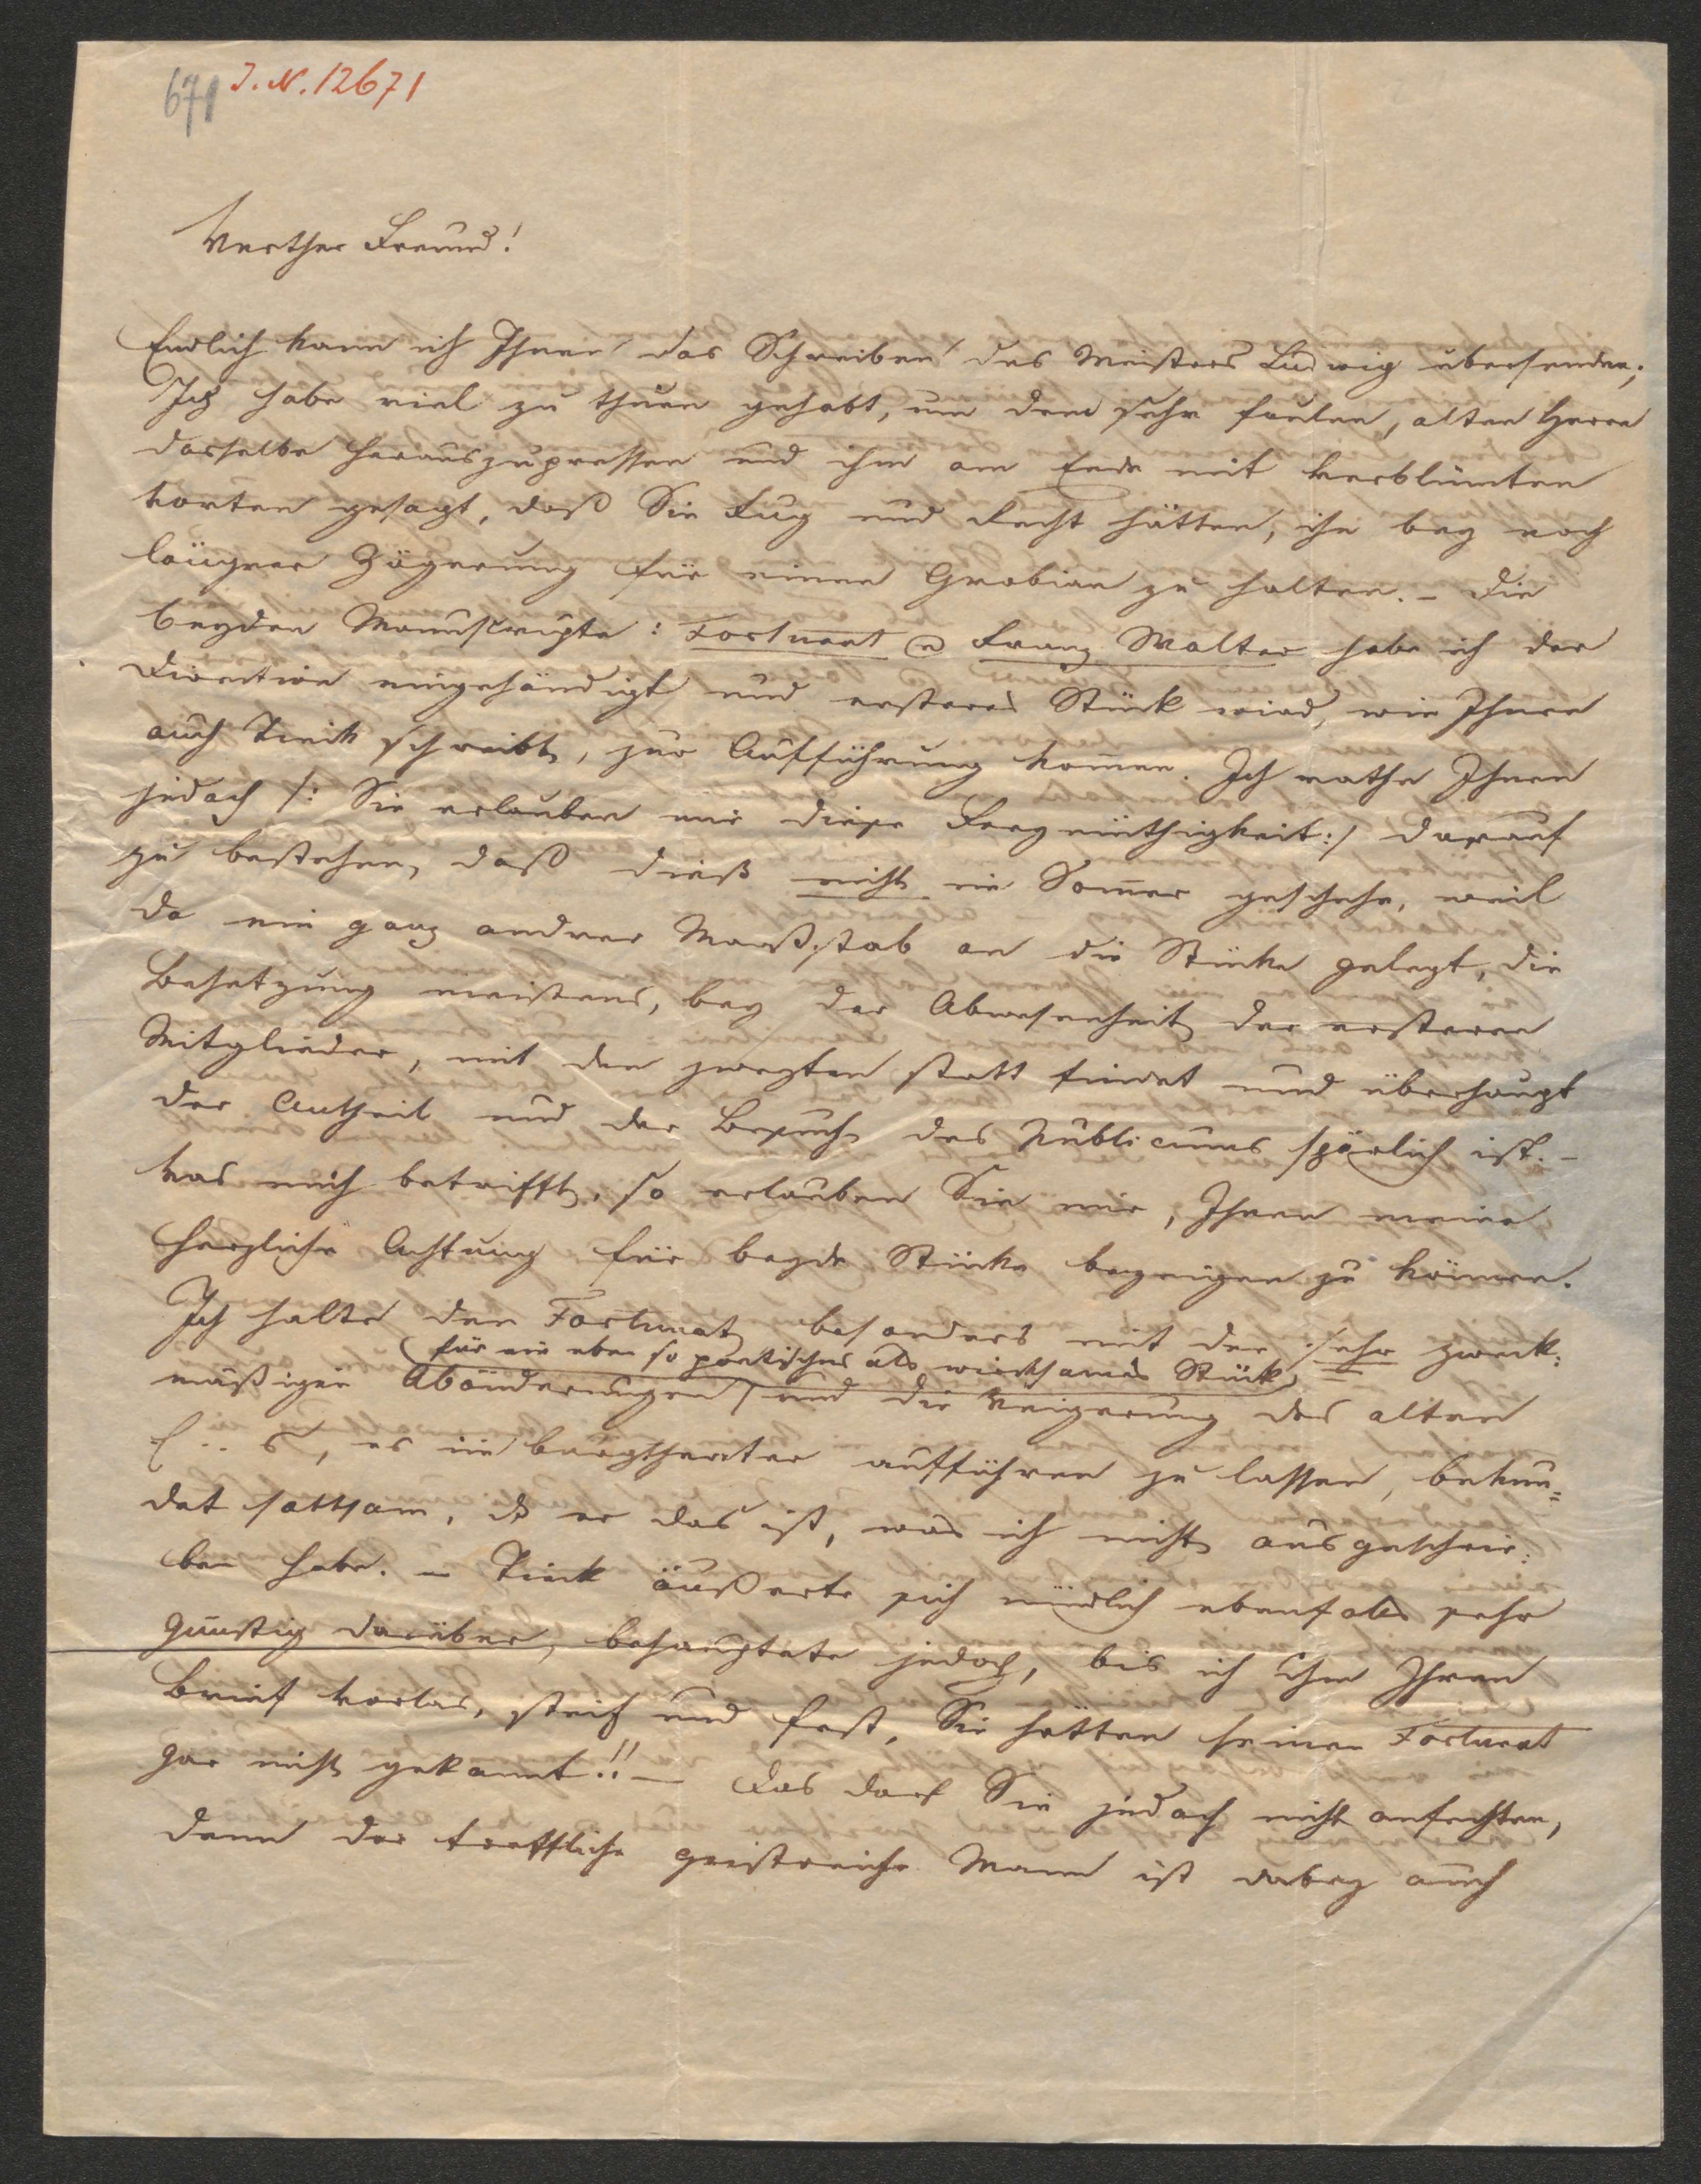 671 I. N. 12671
Werther Freund!
Endlich kann ich Ihnen das Schreiben des Meisters Ludwig übersenden;
Ich habe viel zu thuen gehabt, um dem sehr faulen, alten Herrn
dasselbe herauszupressen und ihm am Ende mit verblümten
Worten gesagt, daß Sie Fug und Recht hätten, ihn bey noch
längrer Zögerung für einen Grobian zu halten. – Die
beyden Manuscripte: Fortunat u Franz Walter habe ich der
Direction eingehändigt und ersteres Stück wird, wie Ihnen
auch Tieck schreibt, zur Aufführung kom̄en. Ich rathe Ihnen
jedoch /: Sie erlauben mir diese Freymüthigkeit :/ darauf
zu bestehen, daß dieß nicht im Som̄er geschehe, weil
da ein ganz andrer Maaßstab an die Stücke gelegt, die
Besetzung meistens, bey der Abwesenheit der ersteren
Mitglieder, mit den zweyten statt findet und überhaupt
der Antheil und der Besuch des Publicums spärlich ist. –
Was mich betrifft, so erlauben Sie mir, Ihnen meine
herzliche Achtung für beyde Stücke bezeugen zu können.
Ich halte den Fortunat besonders mit den sehr zweck:
für ein eben so poetisches als wirksames Stück,
mäßigen Abänderungen und die Weigerung des alten
E .. s, es im Burgtheater aufführen zu lassen, bekun=
det sattsam, dß er das ist, was ich nicht ausgeschrie:
ben habe. – Tieck äußerte sich mündlich ebenfalls sehr
günstig darüber, behauptete jedoch, bis ich ihm Ihren
Brief vorlas, steif und fest, Sie hätten seinen Fortunat
gar nicht gekannt!! – Das darf Sie jedoch nicht anfechten,
denn der treffliche geistreiche Mann ist dabey auch